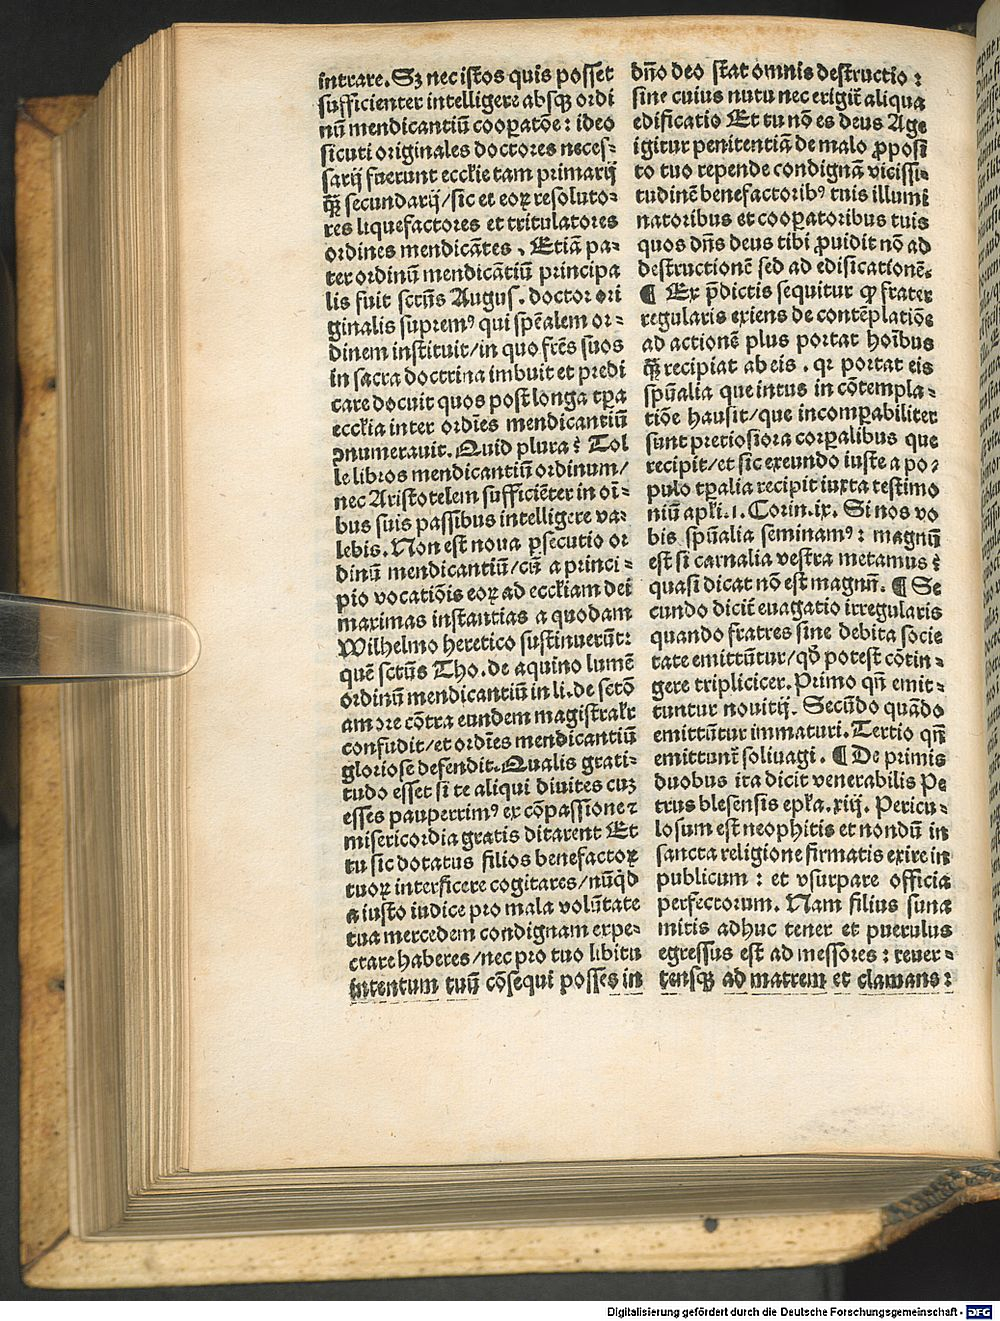 intrare. Sꝫ nec istos quis posset
sufficienter intelligere absqꝫ ordi
nū mendicantiū cooꝑatōe: ideo
sicuti originales doctores neces⸗
sarij fuerunt eccl̄ie tam primarij
qꝫ̄ secundarij/sic et eoꝝ resoluto⸗
res liquefactores et tritulatores
ordines mendicātes. Etiā pa⸗
ter ordinū mendicātiū principa
lis fuit sctūs Augus. doctor ori
ginalis supremꝰ qui spēalem or⸗
dinem instituit/in quo frēs suos
in sacra doctrina imbuit et predi
care docuit quos post longa tꝑa
eccl̄ia inter ordīes mendicantiū
ꝯnumerauit. Quid plura? Tol
le libros mendicantiū ordinum/
nec Aristotelem sufficiēter in oī⸗
bus suis passibus intelligere va⸗
lebis. Non est noua ꝑsecutio or
dinū mendicantiū/cū a princi⸗
pio vocatiōis eoꝝ ad eccl̄iam dei
maximas instantias a quodam
Wilhelmo heretico sustinuerūt:
quē sctūs Tho. de aquino lumē
ordinū mendicantiū in li. de sctō
amore cōtra eundem magistralr̄
confudit/et ordīes mendicantiū
gloriose defendit. Qualis grati⸗
tudo esset si te aliqui diuites cuꝫ
esses pauperrimꝰ ex cōpassione ⁊
misericordia gratis ditarent Et
tu sic dotatus filios benefactoꝝ
tuoꝝ interficere cogitares/nūqͥd
a iusto iudice pro mala volūtate
tua mercedem condignam expe⸗
ctare haberes/nec pro tuo libitu
intentum tuū cōsequi posses in
dn̄o deo stat omnis destructio:
sine cuius nutu nec erigit̄ aliqua
edificatio Et tu nō es deus Age
igitur penitentiā de malo ꝓposi
to tuo repende condignā vicissi⸗
tudinē benefactoribꝰ tuis illumi
natoribus et cooꝑatoribus tuis
quos dn̄s deus tibi ꝓuidit nō ad
destructionē sed ad edificationē.
¶ Ex p̄dictis sequitur ꝙ frater
regularis exiens de contēplatiōe
ad actionē plus portat hoībus
qꝫ̄ recipiat ab eis. qꝛ portat eis
spūalia que intus in cōtempla⸗
tiōe hausit/que incomꝑabiliter
sunt pretiosiora corꝑalibus que
recipit/et sic exeundo iuste a po⸗
pulo tꝑalia recipit iuxta testimo
niū apl̄i. 1. Corin. ix. Si nos vo
bis spūalia seminamꝰ: magnū
est si carnalia vestra metamus?
quasi dicat nō est magnū. ¶ Se
cundo dicit̄ euagatio irregularis
quando fratres sine debita socie
tate emittūtur/qđ potest cōtin⸗
gere tripliciter. Primo qn̄ emit⸗
tuntur nouitij. Secūdo quādo
emittūtur immaturi. Tertio qn̄
emittunt̄ soliuagi. ¶ De primis
duobus ita dicit venerabilis Pe
trus blesensis epl̄a. xiij. Pericu⸗
losum est neophitis et nondū in
sancta religione firmatis exire in
publicum: et vsurpare officia
perfectorum. Nam filius suna
mitis adhuc tener et puerulus
egressus est ad messores: reuer⸗
tensqꝫ ad matrem et clamans:
Digitalisierung gefördert durch die Deutsche Forschungsgemeinschaft - DFG